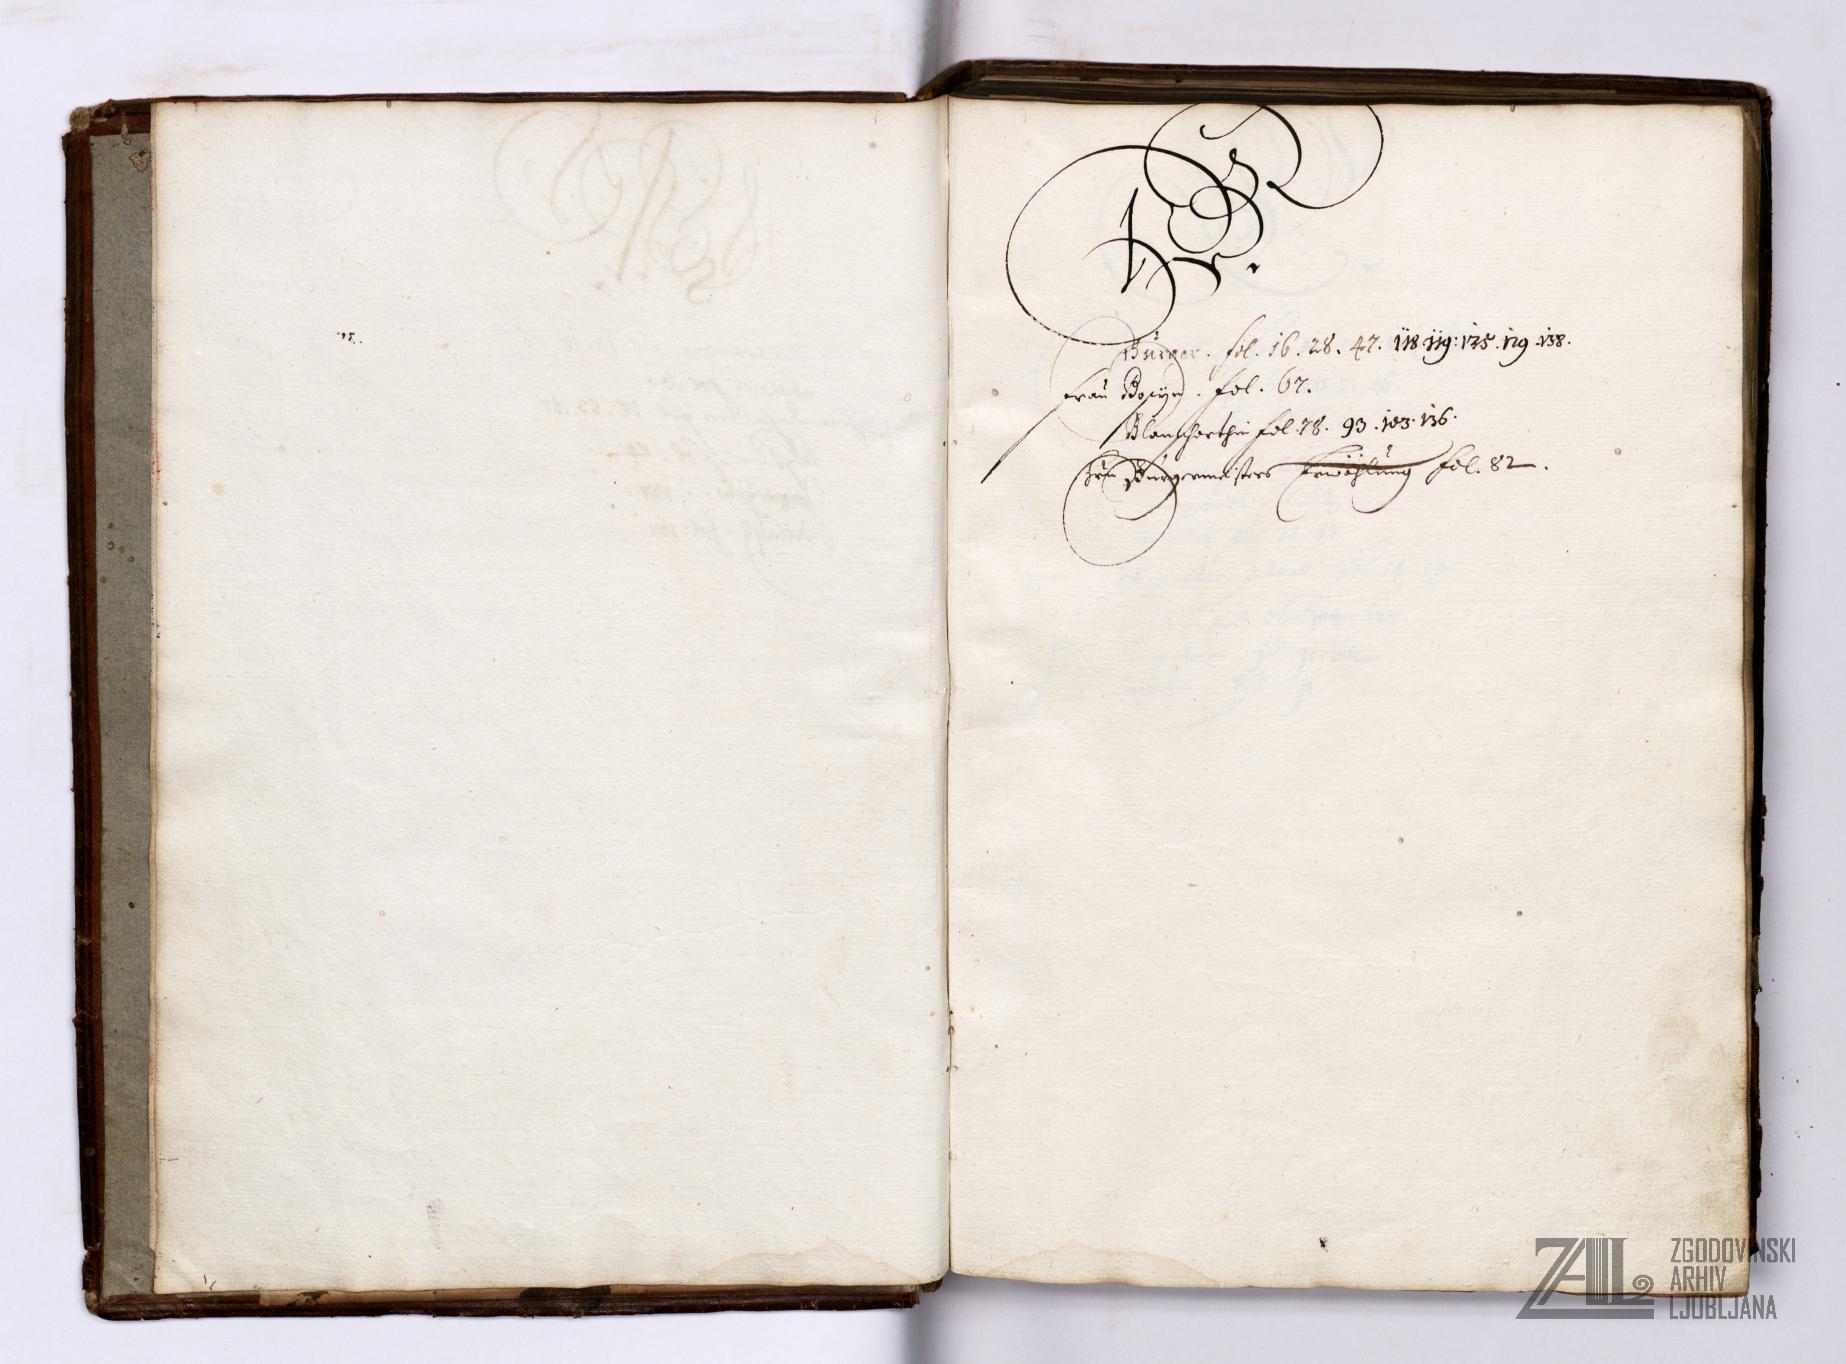 B.
Bürger. fol. 16. 28. 47. 118 119: 125. 129. 138.
Frau fol. 67.
fol. 78. 93. 103. 136.
Hrn Bürgermeisters Erwöhlung fol. 82.
ZAL ZGODOVINSKI
ARHIV
LJUBLJANA